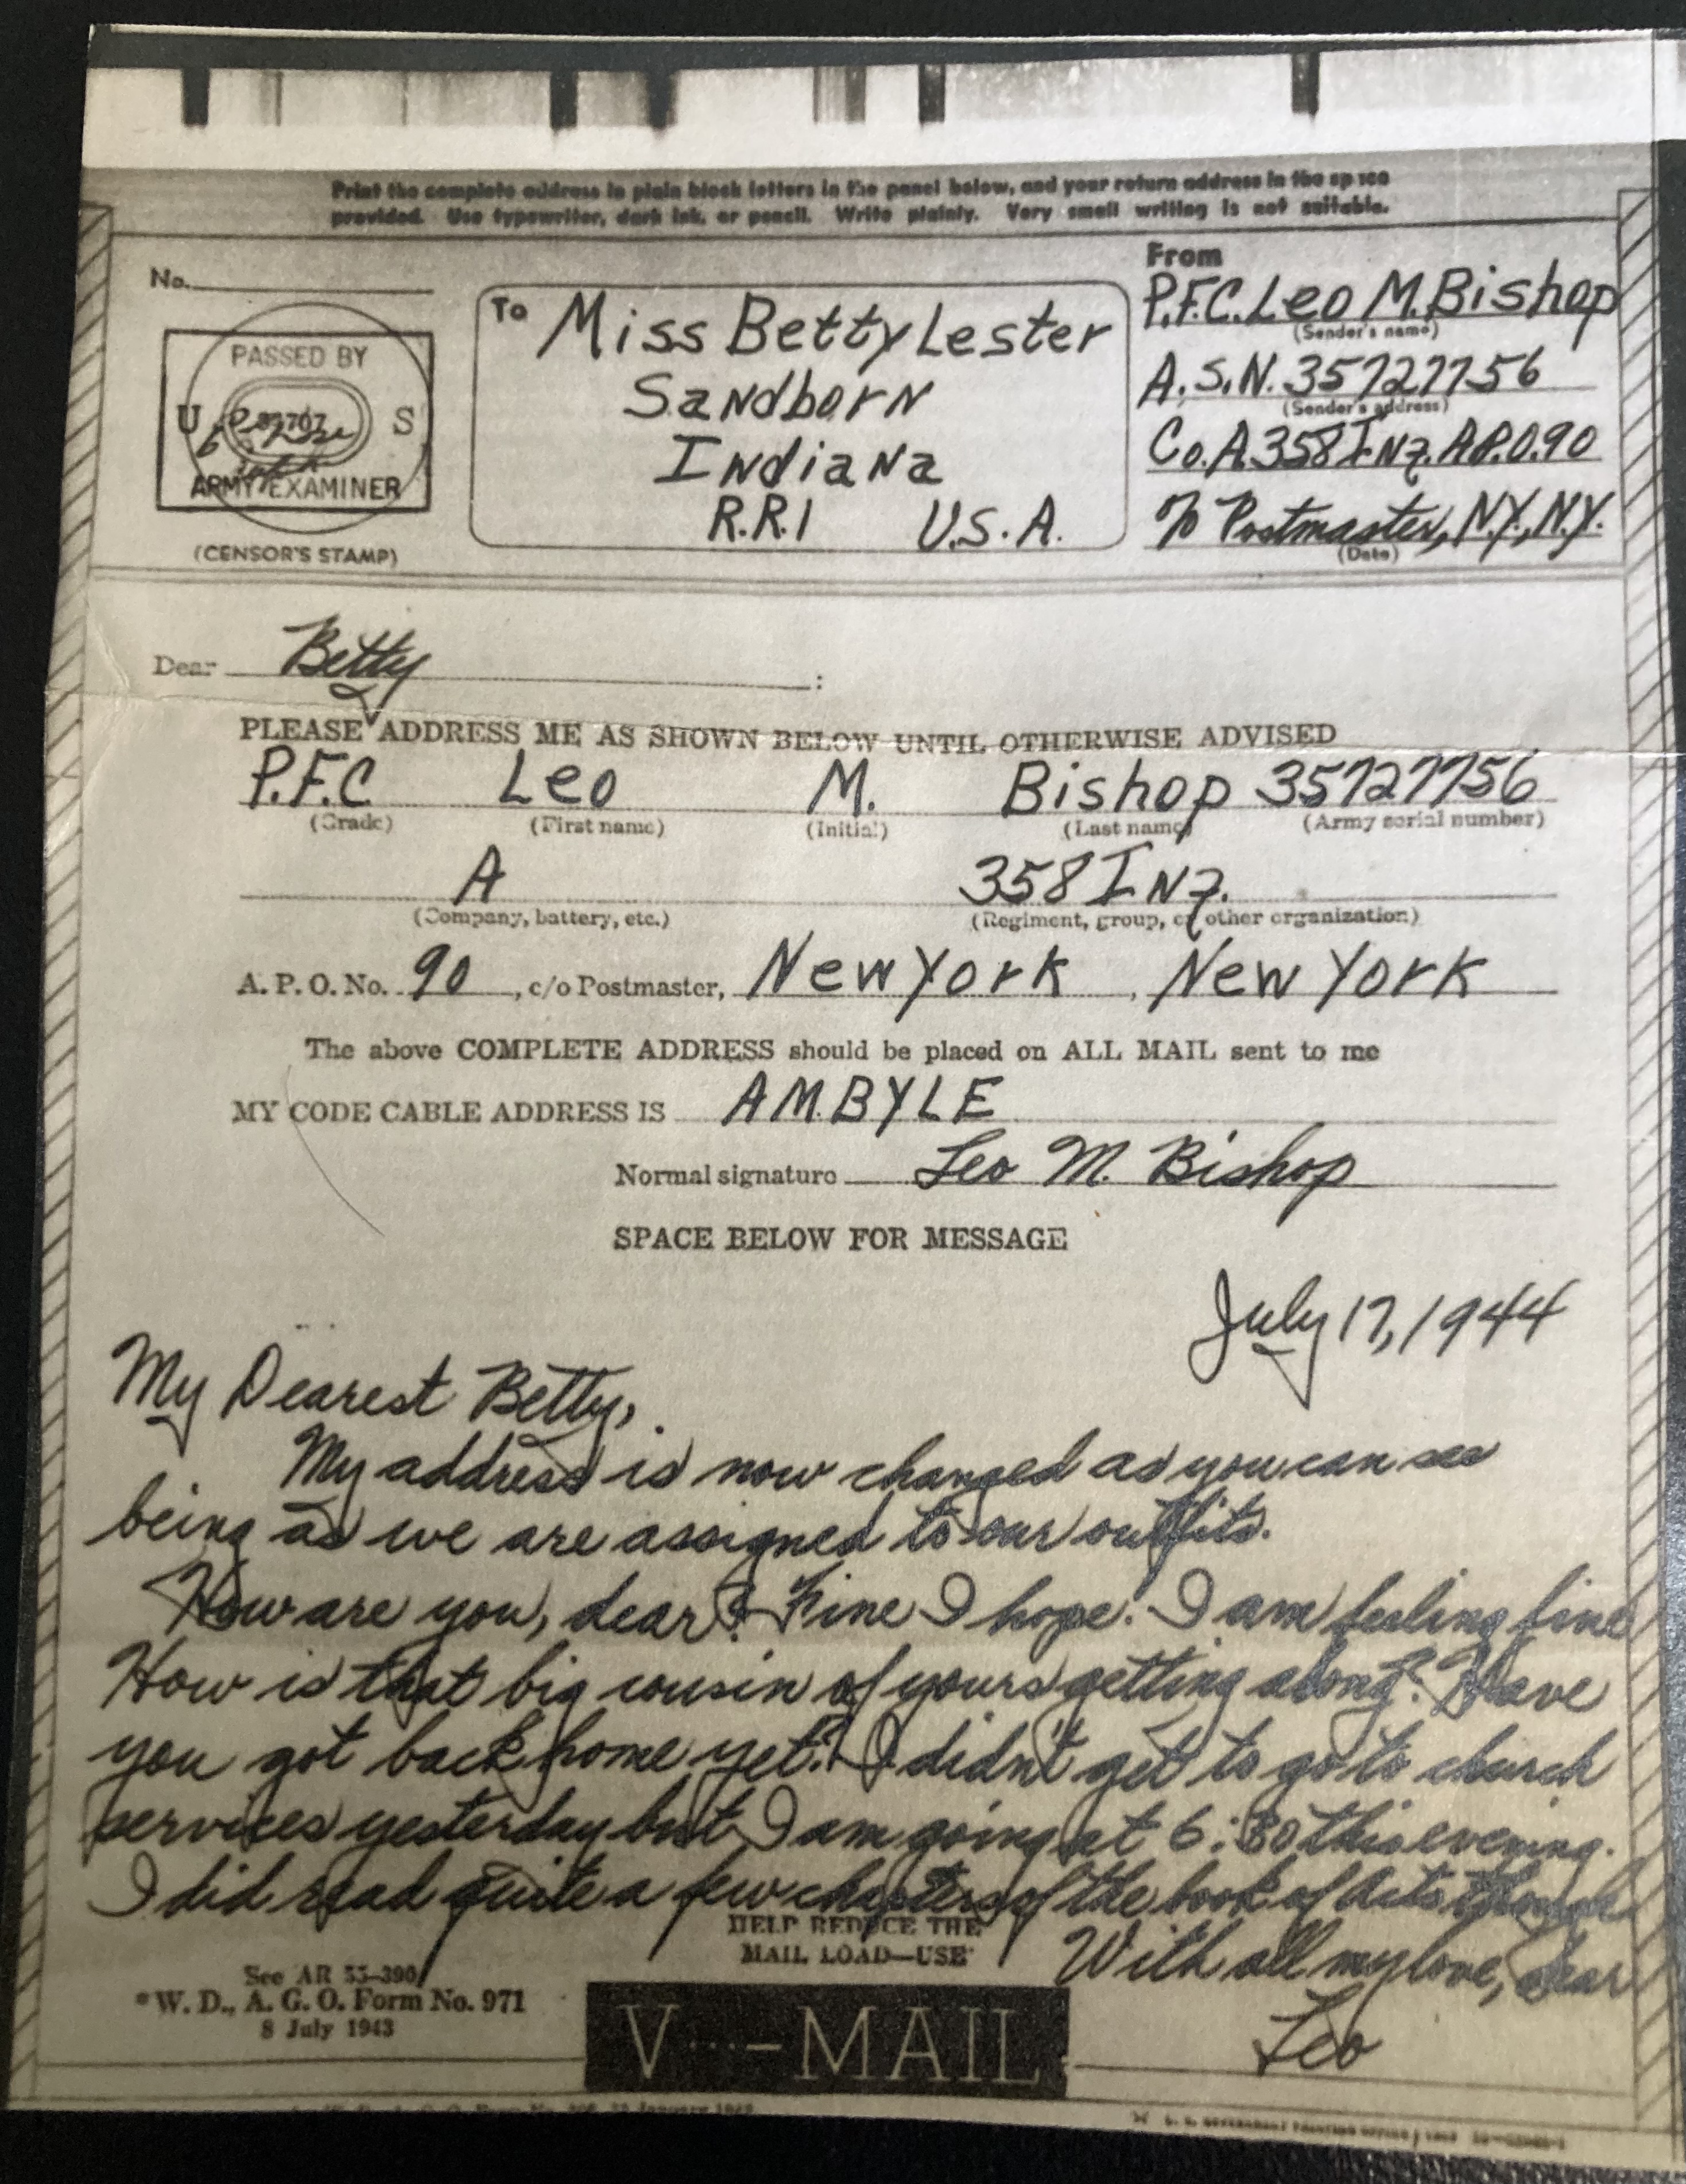 Print the complete address in plain block letters in the panel below, and your return address in the space
provided. Use typewriter, dark ink, or pencil. Write plainly. Very small writing is not suitable.
No.
PASSED BY
U S
ARMY EXAMINER
(CENSOR'S STAMP)
To Miss Betty Lester
Sandborn
Indiana
R.R.1 U.S.A.
From
P.F.C. Leo M. Bishop
(Sender's name)
A.S.N. 35727756
(Sender's address)
Co. A. 358 Inf. A.P.O. 90
c/o Postmaster, N.Y., N.Y.
(Date)
Dear Betty :
PLEASE ADDRESS ME AS SHOWN BELOW UNTIL OTHERWISE ADVISED
P.F.C. Leo M. Bishop 35727756
(Grade) (First name) (Initial) (Last name) (Army serial number)
A 358 Inf.
(Company, battery, etc.) (Regiment, group, or other organization)
A. P. O. No. 90, c/o Postmaster, New York, New York
The above COMPLETE ADDRESS should be placed on ALL MAIL sent to me
MY CODE CABLE ADDRESS IS AMBYLE
Normal signature Leo M. Bishop
SPACE BELOW FOR MESSAGE
July 17, 1944
My Dearest Betty,
My address is now changed as you can see
being as we are assigned to our outfits.
How are you, dear? Fine I hope. I am feeling fine
How is that big cousin of yours getting along? Have
you got back home yet? I didn't get to go to church
services yesterday but I am going at 6:30 this evening.
I did read quite a few chapters of the book of Acts though
With all my love, dear
Leo
HELP REDUCE THE
MAIL LOAD—USE
See AR 35-390
*W. D., A. G. O. Form No. 971
8 July 1943
V···—MAIL